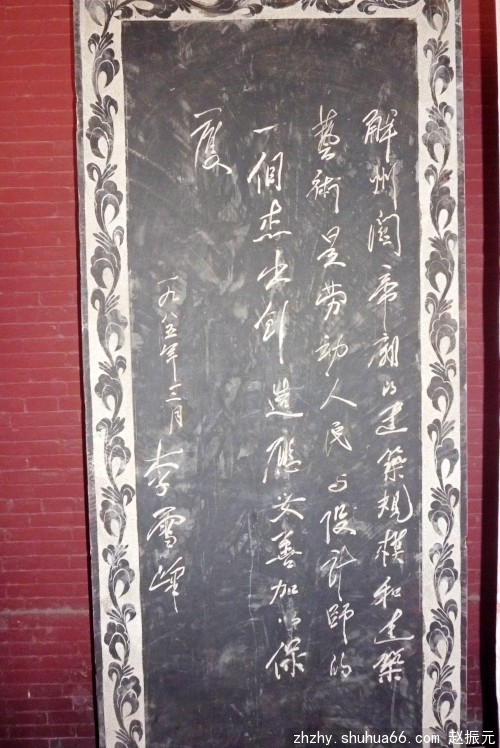 解州関帝廟的建築規模和建築
藝術是劳動人民与設計師的
一個杰出創造應妥善加以保
護
一九八五年三月 李雪峰
zhzhy.shuhua66.com 赵振元